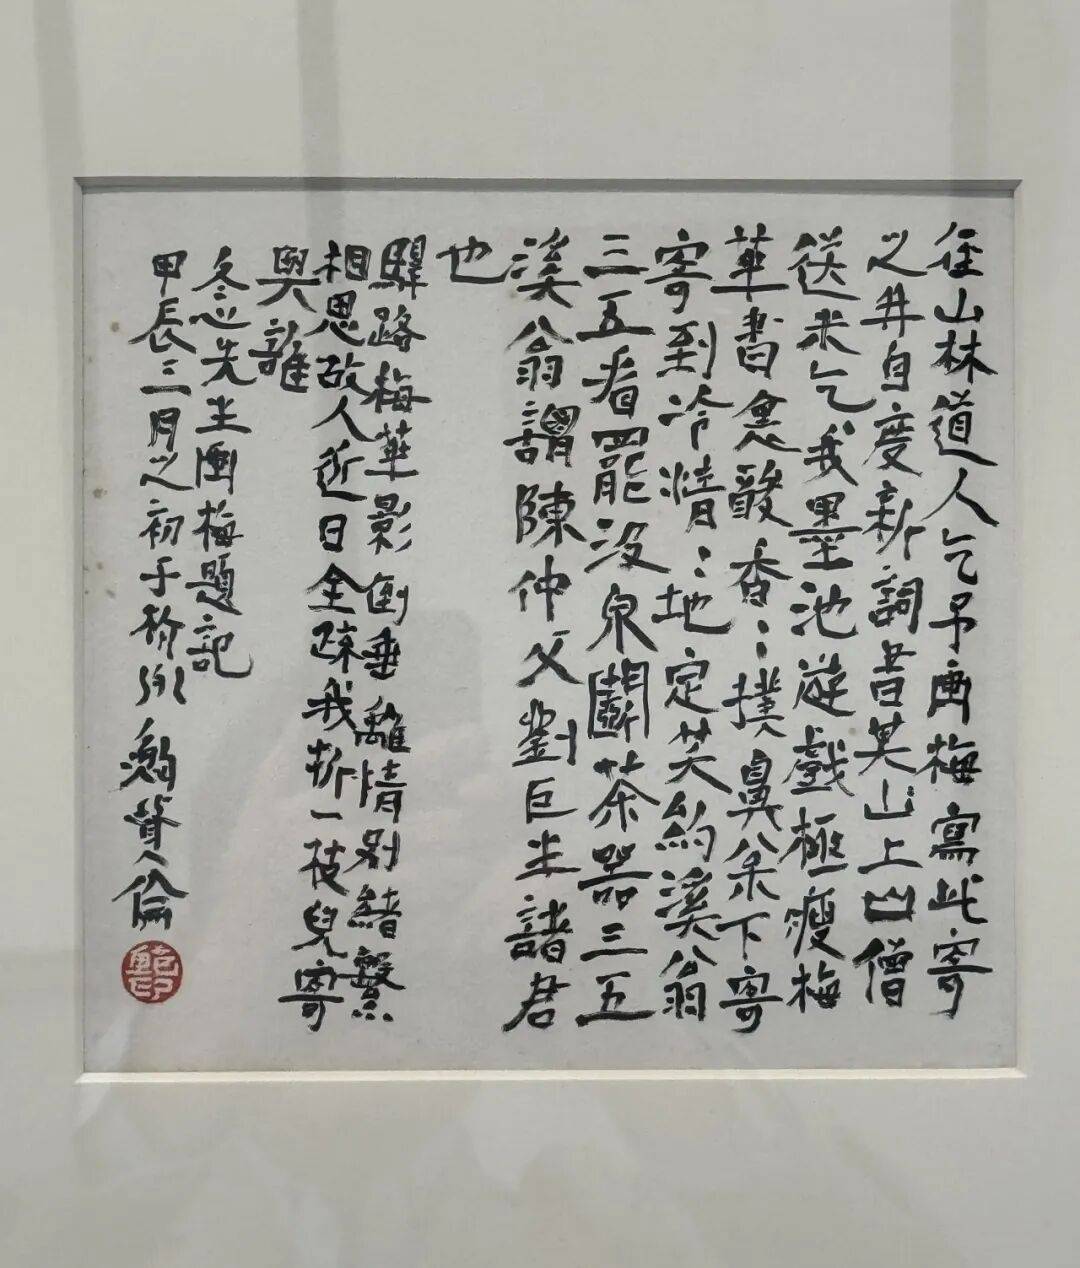 徑山林道人乞予畫梅寫此寄
之并自度新詞昔某山上山僧
送米乞我墨池遊戲極瘦梅
華書裏酸香：撲鼻松下寄
寄到冷清：地定笑約溪翁
三五看罷汲泉鬭茶器三五
溪翁謂陳仲父劉巨半諸君
也
驛路梅華影倒垂離情別緒繫
相思故人近日全疎我折一枝兒寄
與誰
冬心先生畫梅題記
甲辰三月之初于